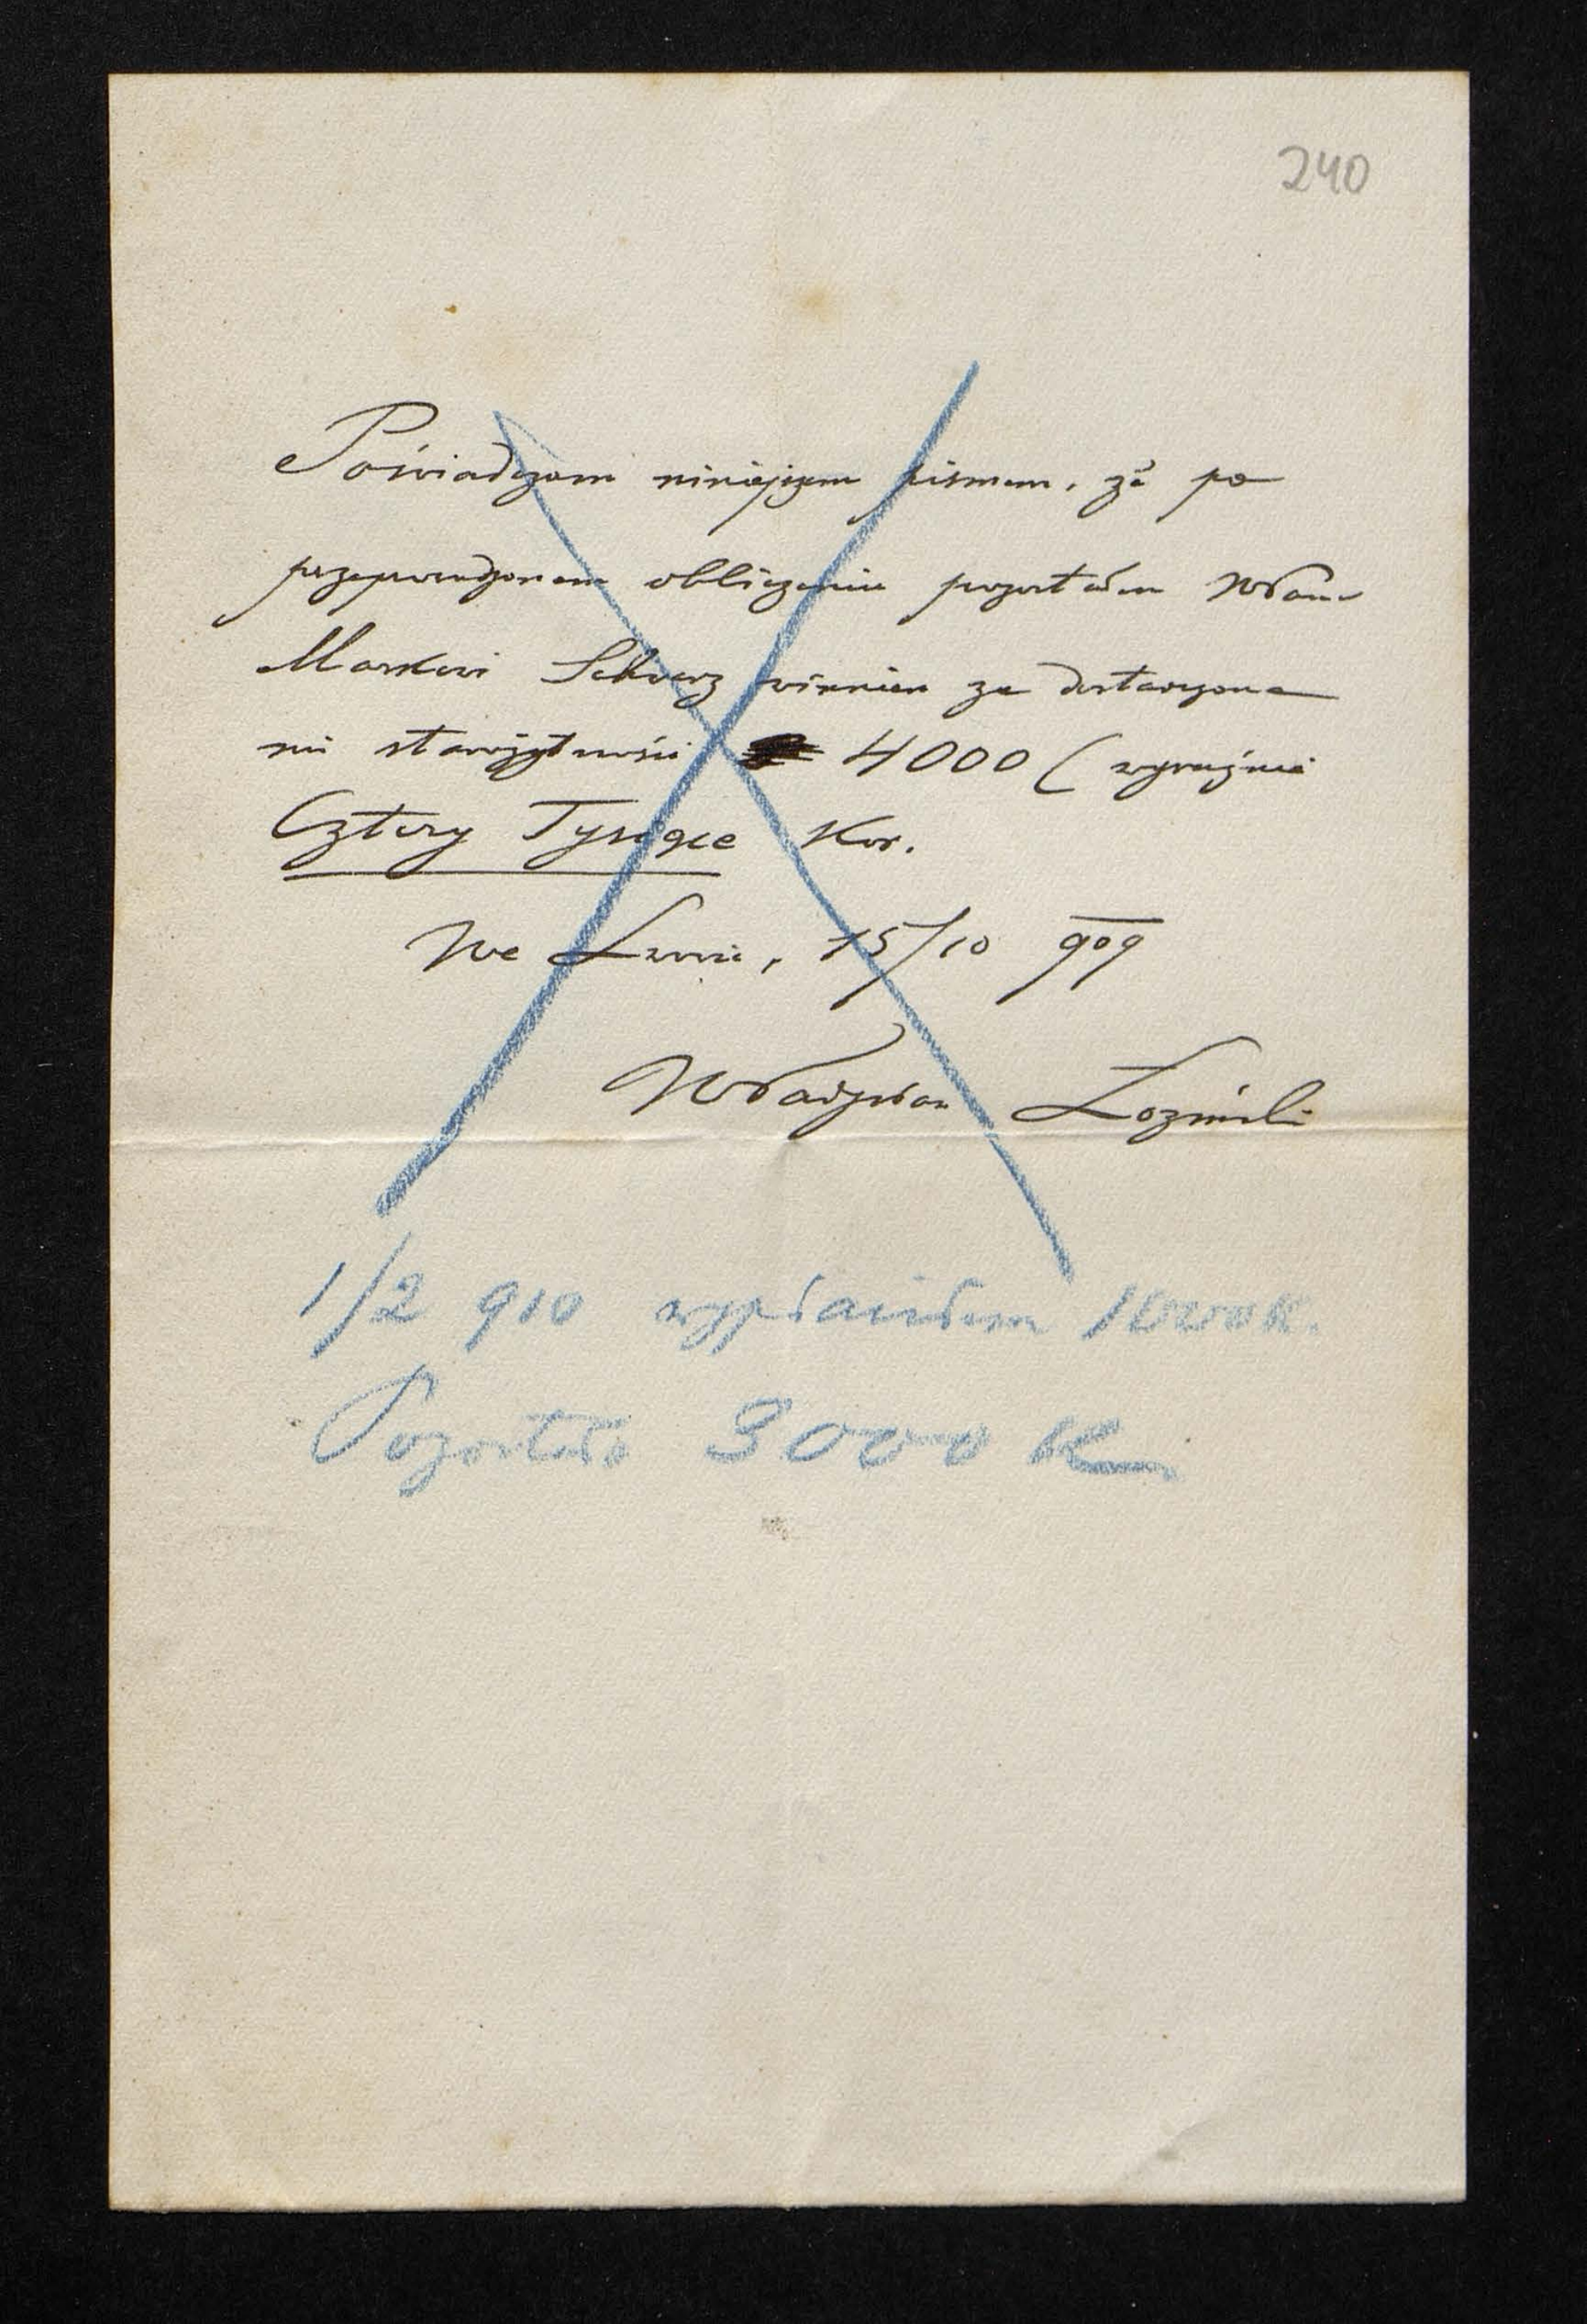 240
Poświadczam niniejszem pismem, że po
przeprowadzonem obliczeniu pozostałem WPanu
Markowi Schwarz winnien za dostarczone
mi starożytności 4000 (wyraźnie
Cztery Tysiące Kor.
We Lwowie, 15/10 909
Władysław Łoziński
1/2 910 wypłaciłem 1000 K.
Pozostało 3000 K